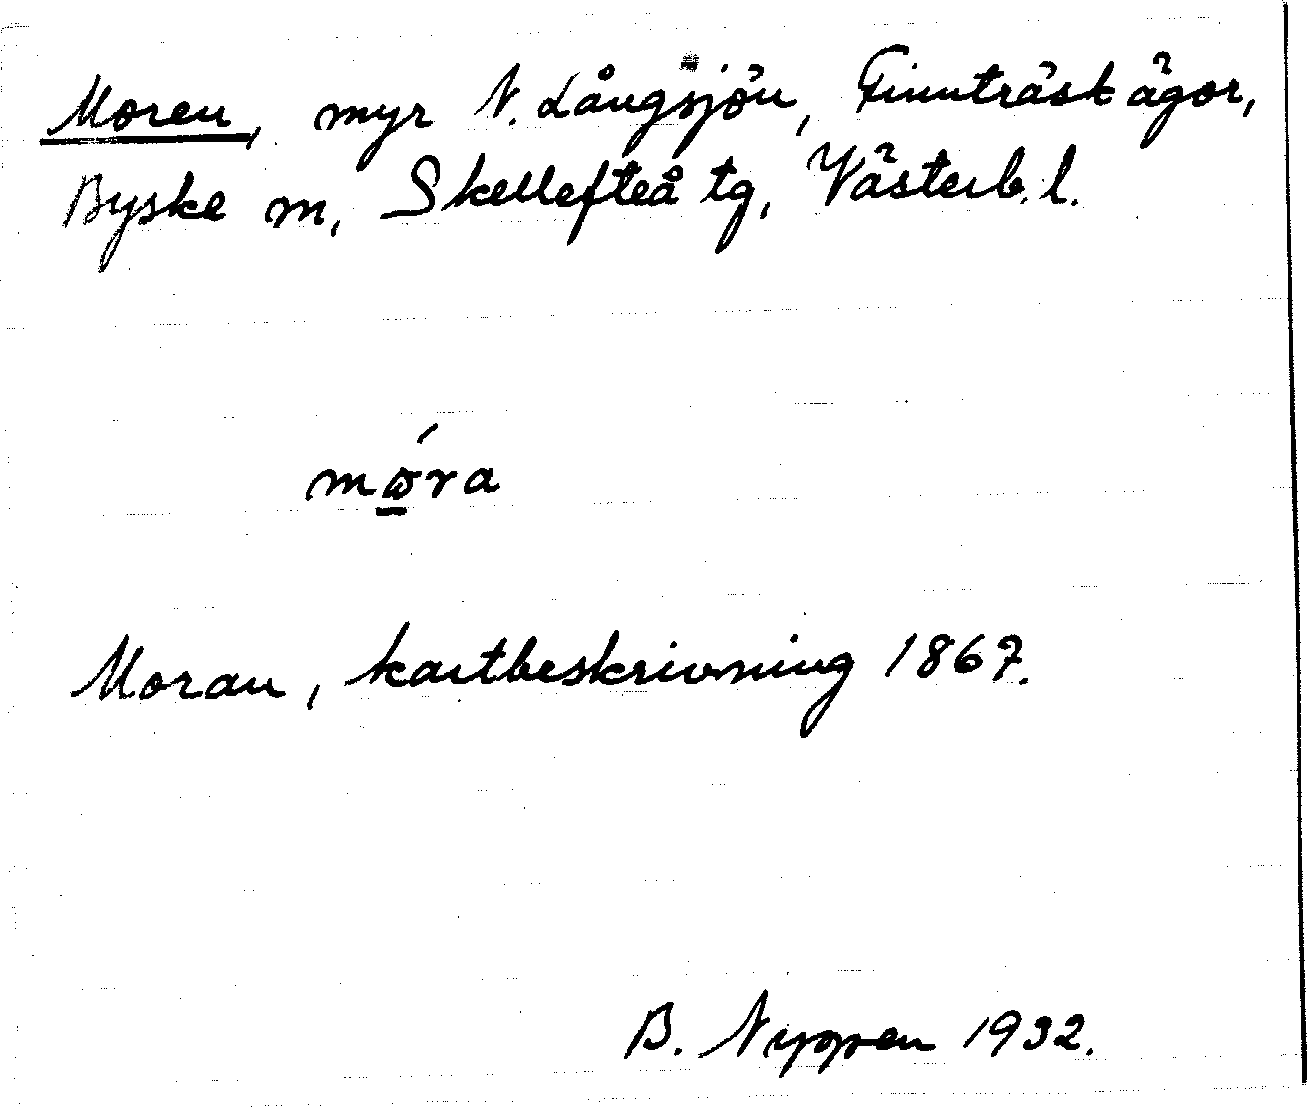 Moren, myr N. Långsjön, Finnträsk ägor,
Byske sn, Skellefteå tg, Västerb. l.
mώ̲ra
Moran, kartbeskrivning 1867.
B. Nyppen 1932.